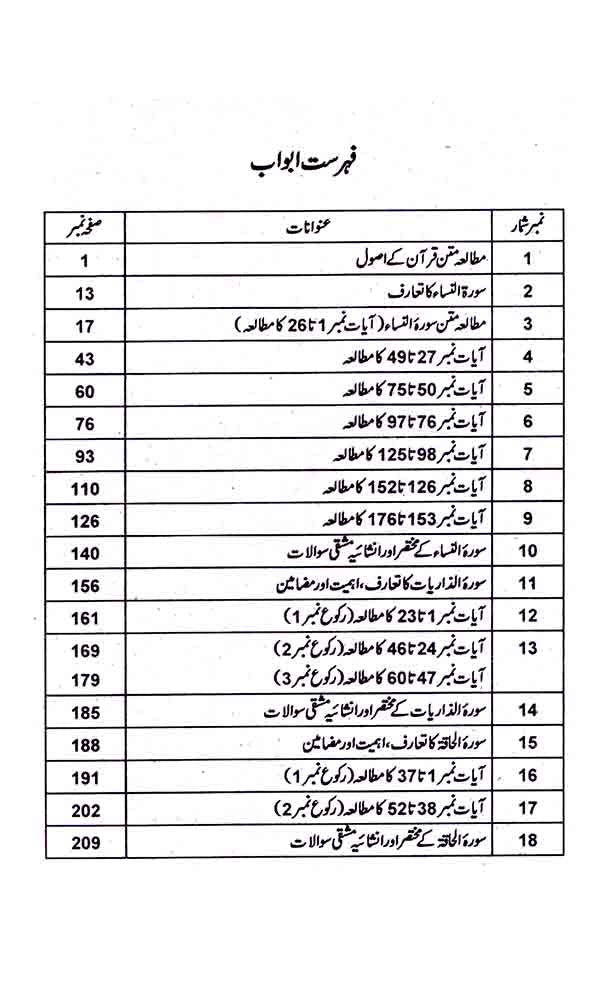 فہرست ابواب
نمبر شمار عنوانات صفحہ نمبر
1 مطالعہ متن قرآن کے اصول 1
2 سورۃ النساء کا تعارف 13
3 مطالعہ متن سورۃ النساء (آیات نمبر 1 تا 26 کا مطالعہ) 17
4 آیات نمبر 27 تا 49 کا مطالعہ 43
5 آیات نمبر 50 تا 75 کا مطالعہ 60
6 آیات نمبر 76 تا 97 کا مطالعہ 76
7 آیات نمبر 98 تا 125 کا مطالعہ 93
8 آیات نمبر 126 تا 152 کا مطالعہ 110
9 آیات نمبر 153 تا 176 کا مطالعہ 126
10 سورۃ النساء کے مختصر اور انشائیہ مشقی سوالات 140
11 سورۃ الذاریات کا تعارف، اہمیت اور مضامین 156
12 آیات نمبر 1 تا 23 کا مطالعہ (رکوع نمبر 1) 161
13 آیات نمبر 24 تا 46 کا مطالعہ (رکوع نمبر 2) 169
آیات نمبر 47 تا 60 کا مطالعہ (رکوع نمبر 3) 179
14 سورۃ الذاریات کے مختصر اور انشائیہ مشقی سوالات 185
15 سورۃ الحاقۃ کا تعارف، اہمیت اور مضامین 188
16 آیات نمبر 1 تا 37 کا مطالعہ (رکوع نمبر 1) 191
17 آیات نمبر 38 تا 52 کا مطالعہ (رکوع نمبر 2) 202
18 سورۃ الحاقۃ کے مختصر اور انشائیہ مشقی سوالات 209